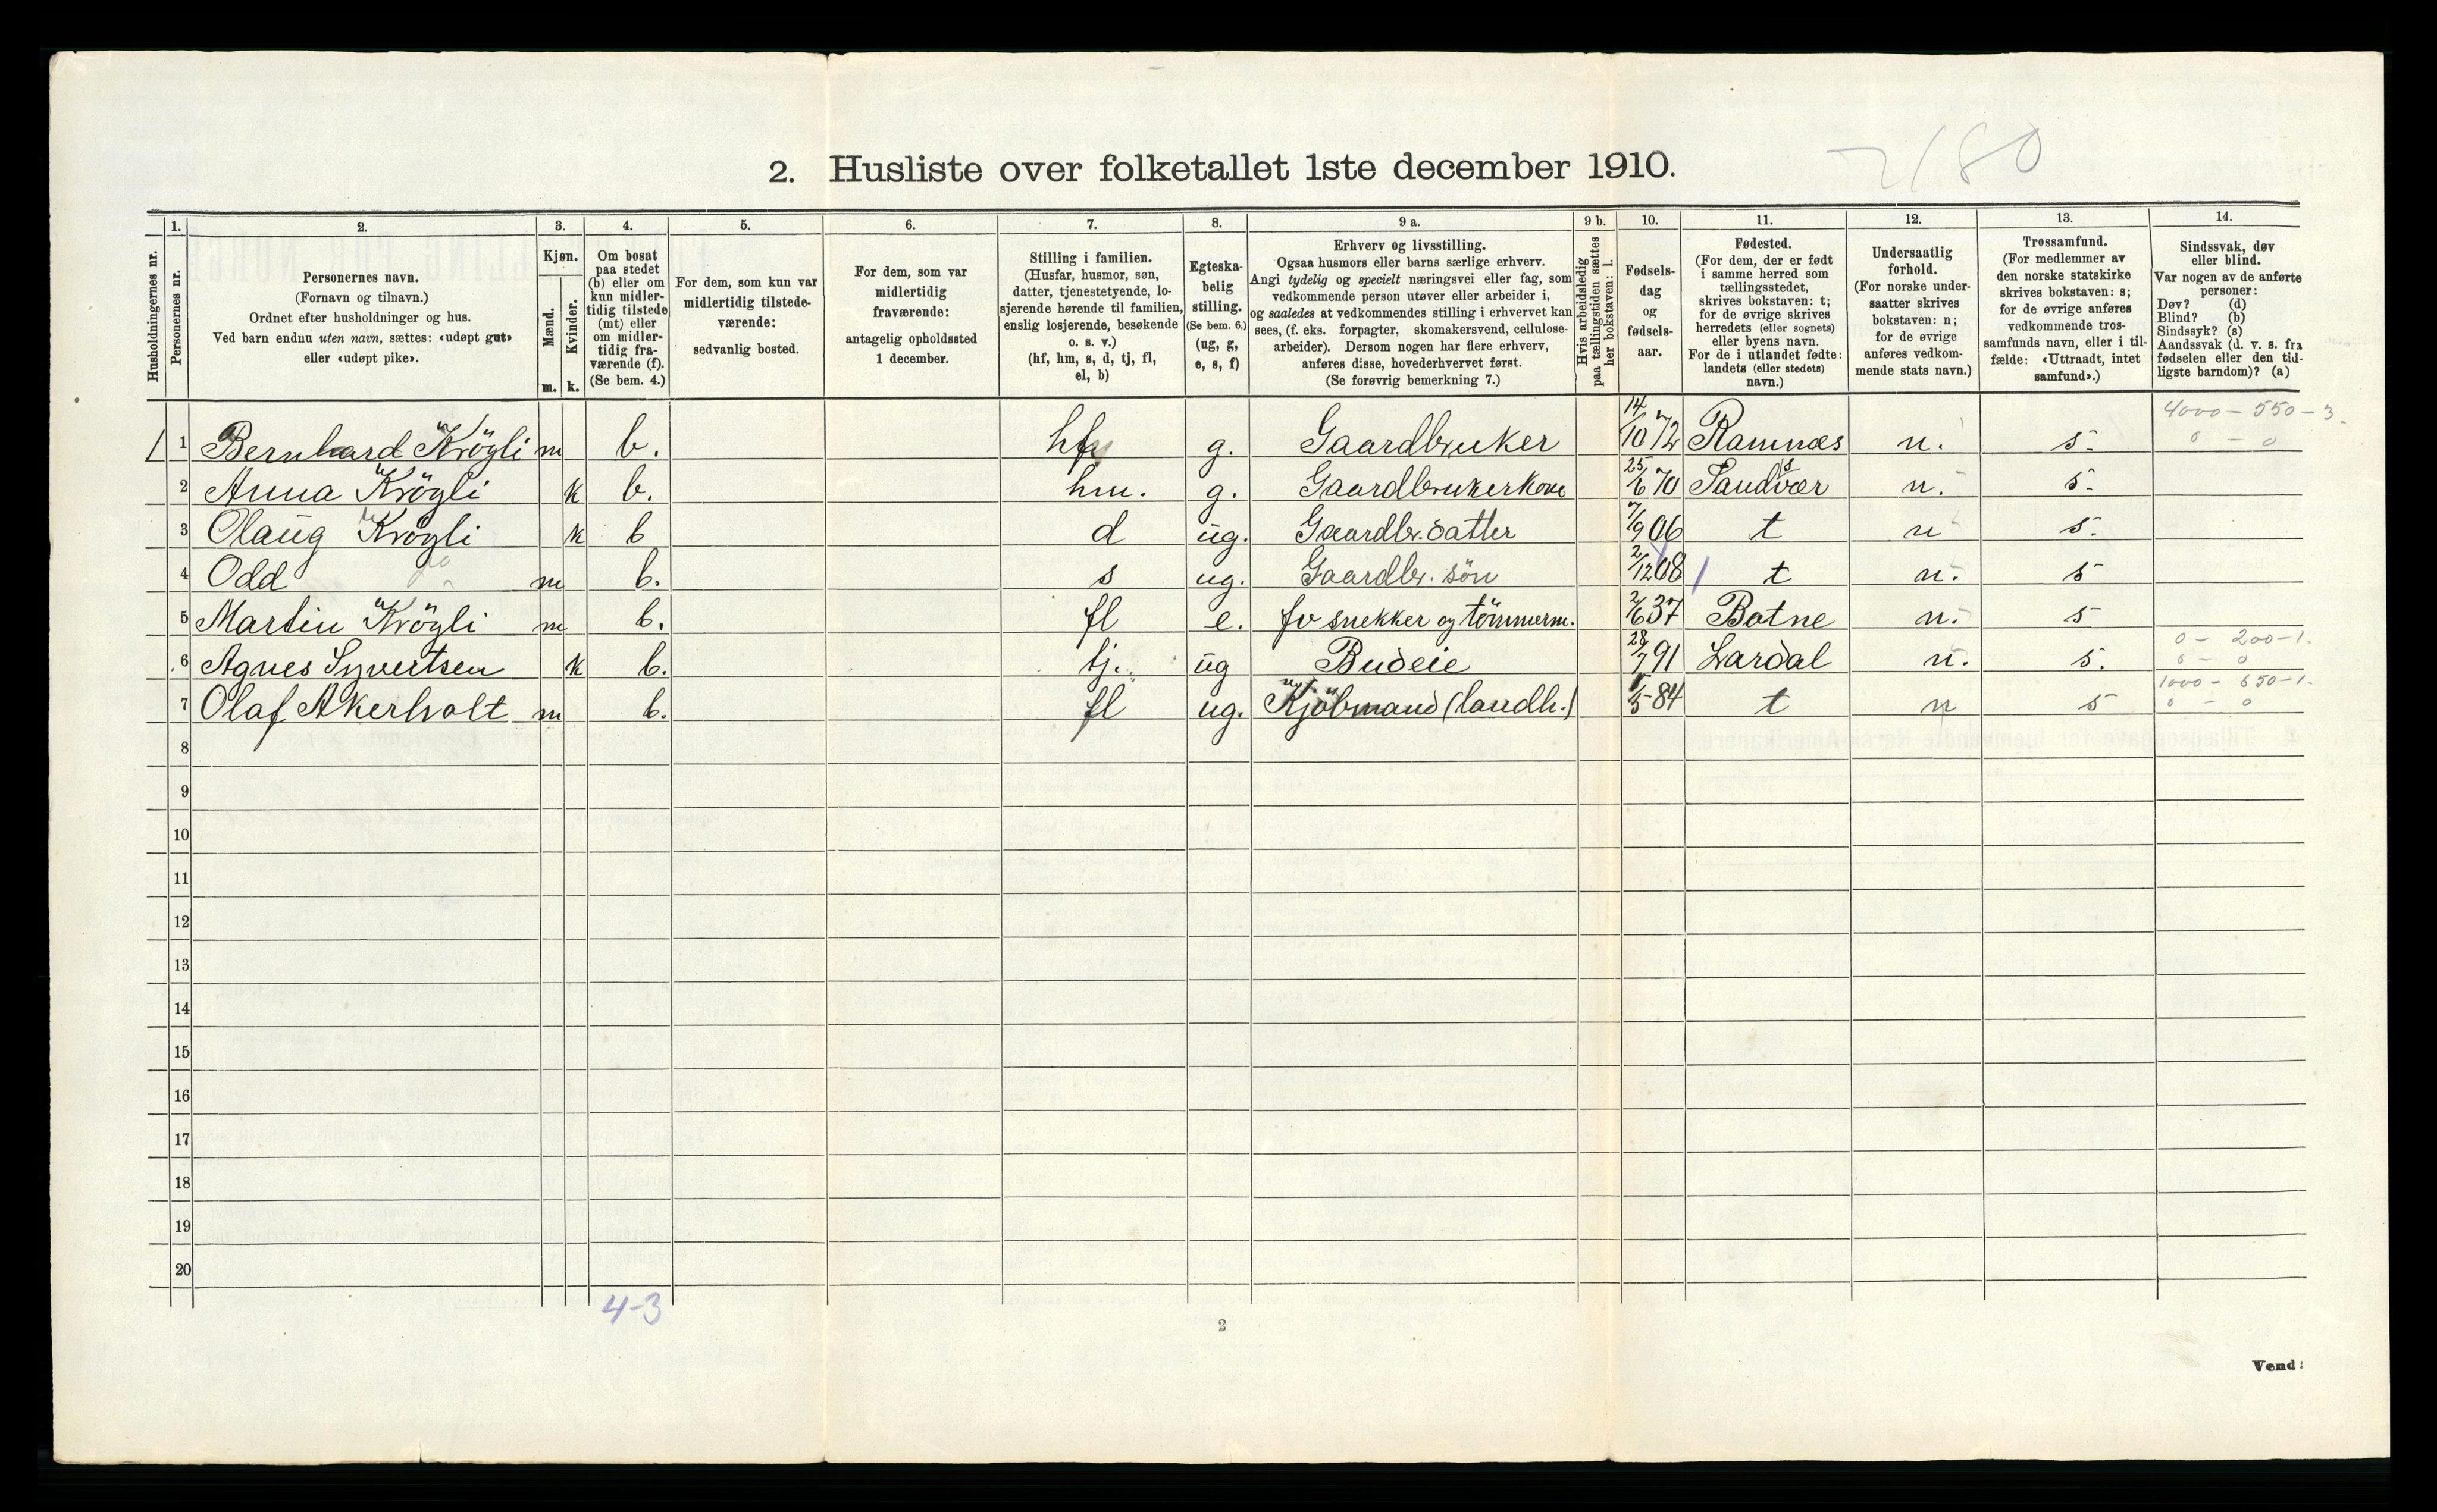 7/80
2. Husliste over folketallet 1ste december 1910.
Husholdningernes nr.
1. Personernes nr.
2. Personernes navn. (Fornavn og tilnavn.) Ordnet efter husholdninger og hus. Ved barn endnu uten navn, sættes: «udøpt gut» eller «udøpt pike».
3. Kjøn. Mænd. m. Kvinder. k.
4. Om bosat paa stedet (b) eller om kun midlertidig tilstede (mt) eller om midlertidig fraværende (f). (Se bem. 4.)
5. For dem, som kun var midlertidig tilstedeværende: sedvanlig bosted.
6. For dem, som var midlertidig fraværende: antagelig opholdssted 1 december.
7. Stilling i familien. (Husfar, husmor, søn, datter, tjenestetyende, losjerende hørende til familien, enslig losjerende, besøkende o. s. v.) (hf, hm, s, d, tj, fl, el, b)
8. Egteskabelig stilling. (Se bem. 6.) (ug, g, e, s, f)
9 a. Erhverv og livsstilling. Ogsaa husmors eller barns særlige erhverv. Angi tydelig og specielt næringsvei eller fag, som vedkommende person utøver eller arbeider i, og saaledes at vedkommendes stilling i erhvervet kan sees, (f. eks. forpagter, skomakersvend, cellulosearbeider). Dersom nogen har flere erhverv, anføres disse, hovederhvervet først. (Se forøvrig bemerkning 7.)
9 b. Hvis arbeidsledig paa tællingstiden sættes her bokstaven: l.
10. Fødselsdag og fødselsaar.
11. Fødested. (For dem, der er født i samme herred som tællingsstedet, skrives bokstaven: t; for de øvrige skrives herredets (eller sognets) eller byens navn. For de i utlandet fødte: landets (eller stedets) navn.)
12. Undersaatlig forhold. (For norske undersaatter skrives bokstaven: n; for de øvrige anføres vedkommende stats navn.)
13. Trossamfund. (For medlemmer av den norske statskirke skrives bokstaven: s; for de øvrige anføres vedkommende trossamfunds navn, eller i tilfælde: «Uttraadt, intet samfund».)
14. Sindssvak, døv eller blind. Var nogen av de anførte personer: Døv? (d) Blind? (b) Sindssyk? (s) Aandssvak (d. v. s. fra fødselen eller den tidligste barndom)? (a)
1 1 Bernhard Krögli m b. hf g. Gaardbruker 14/10 72 Ramnæs n. s. 4000 - 550 - 3 0 - 0
2 Anna Krögli k b. hm. g. Gaardbrukerkone 25/6 70 Sandsvær n. s.
3 Olaug Krögli k b d ug. Gaardbr. datter 7/9 06 t n s.
4 Odd do m b. s ug. Gaardbr. sön 2/12 08 t n. s
5 Martin Krögli m b. fl e. fv snekker og tömmerm. 2/6 37 Botne n. s
6 Agnes Syvertsen k b. tj. ug Budeie 28/7 91 Lardal n. s. 0 - 200 - 1. 0 - 0
7 Olaf Akerholt m b. fl ug. Kjöbmand (landh.) 84 t n s 1000 - 650 - 1. 0 - 0
8
9
10
11
12
13
14
15
16
17
18
19
20
4-3
2
Vend!